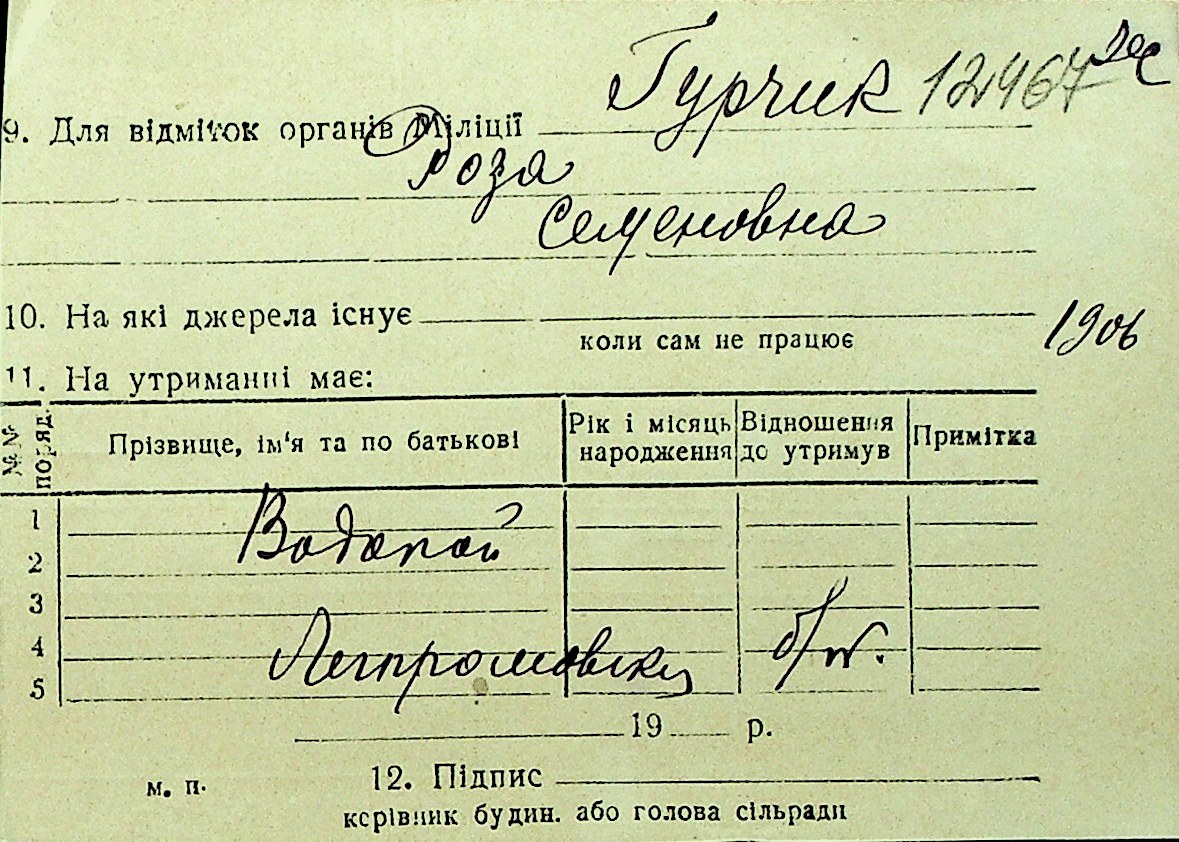 Гурчик 12467
9. Для відміток органів Міліції
Роза
Семеновна
10. На які джерела існує
коли сам не працює
1906
11. На утриманні має:
№№ поряд.
Прізвище, ім'я та по батькові
Рік і місяць народження
Відношення до утримув
Примітка
1
Водопой
2
3
4
Легпромовску б/н.
5
19 р.
м. п.
12. Підпис
керівник будин. або голова сільради